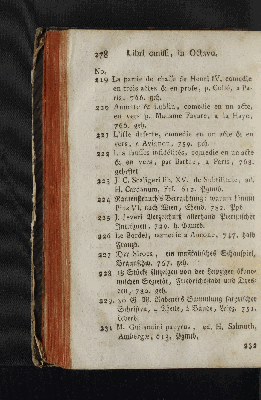 278 Libri omiss. in Octavo.
No.
219 La partie de chasse de Henri IV. comedie
en trois actes & en prose, p. Collé, a Pa-
ris. 766. geh.
220 Annette & Lubin, comedie en un acte,
en vers p. Madame Favart, a la Haye,
766. geh.
221 L'isle deserte, comedie en un acte & en
vers, a Avignon, 759. geh.
222 fausses infidélités, comedie en un acte
& en vers, par Barthe, a Paris, 768.
geheftet
223 J. C. Scaligeri lib. XV. de Subtilitate, ad
H. Cardanum, Frf. 612. Pgmb.
224 Betrachtung: warum kömmt
Pius VI. nach Wien, 782. Ppb.
225 J. Verzeichniß allerhand Preußischer
729. h. Pgmb.
226 Le Bordel, comedie a Ancone, 747. halb
Franzb.
227 Der Zirous, ein musikalisches Schauspiel,
Braunschw. 767. geh.
228 18 Stücke Anzeigen von der Leipziger ökono-
mischen Societät, Friedrichstadt und Dres-
den, 780. geh.
229 G. W. Rabeners Sammlung satyrischer
Schriften, 4 Theile, 2 Bände, Leipz. 751.
Lederb.
231 M. Guilandini papyrus, ed. H. Salmuth,
Ambergæ, 613. Pgmb.
232